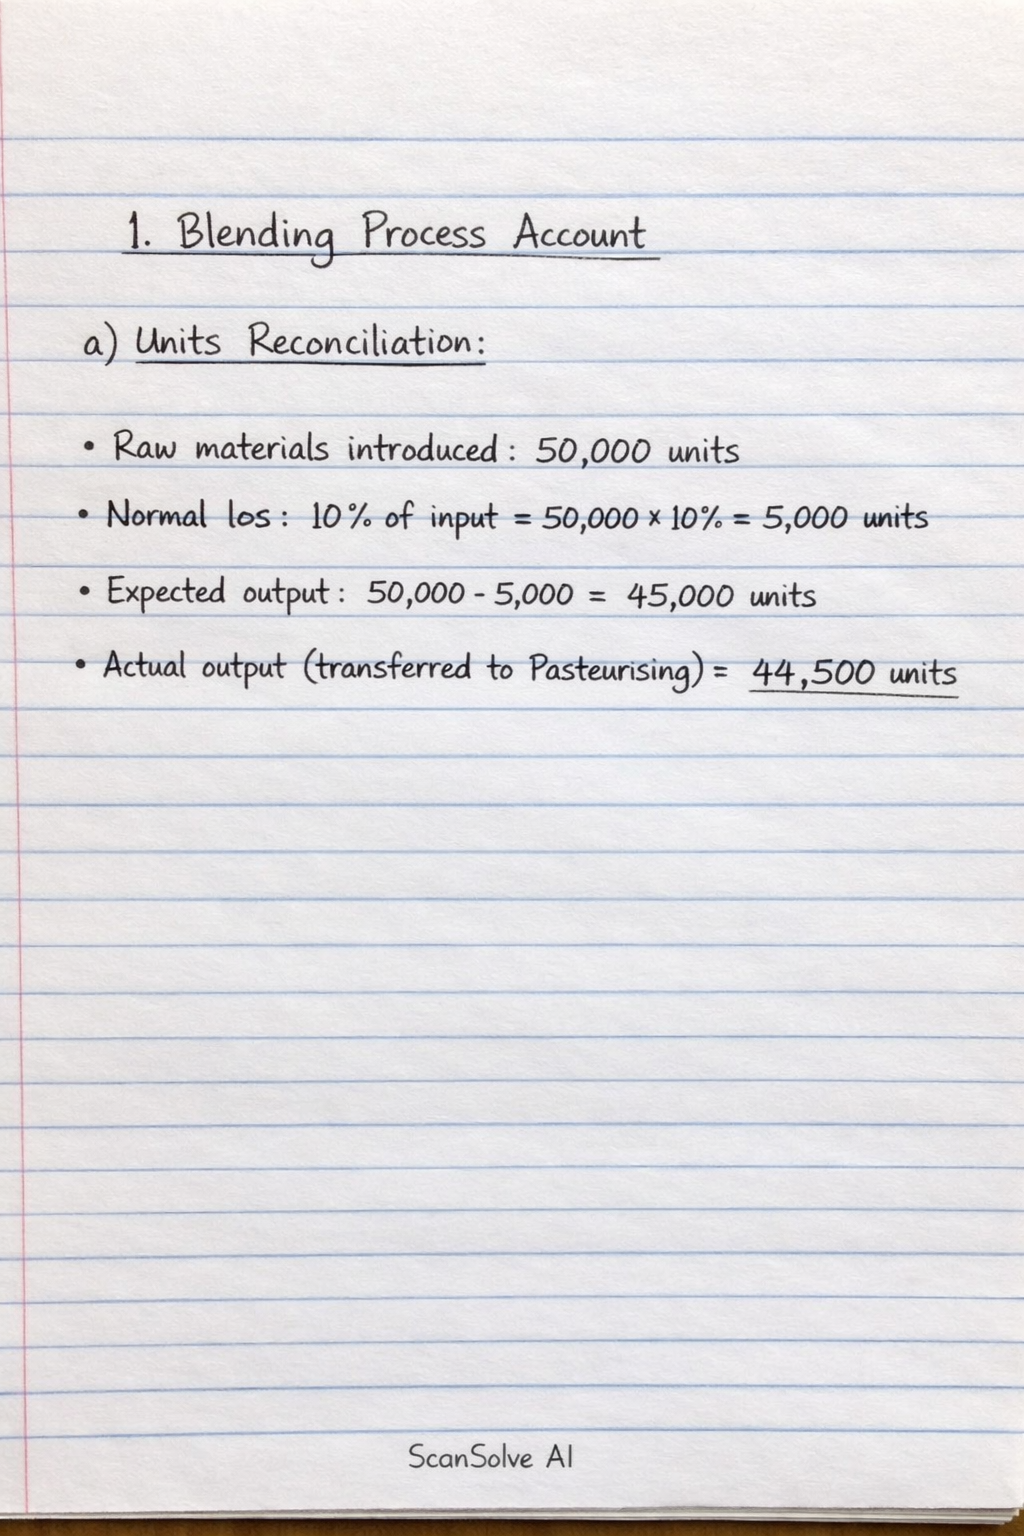 1. Blending Process Account
a) Units Reconciliation:
• Raw materials introduced: 50,000 units
• Normal los: 10% of input = 50,000 × 10% = 5,000 units
• Expected output: 50,000 - 5,000 = 45,000 units
• Actual output (transferred to Pasteurising) = 44,500 units
ScanSolve AI